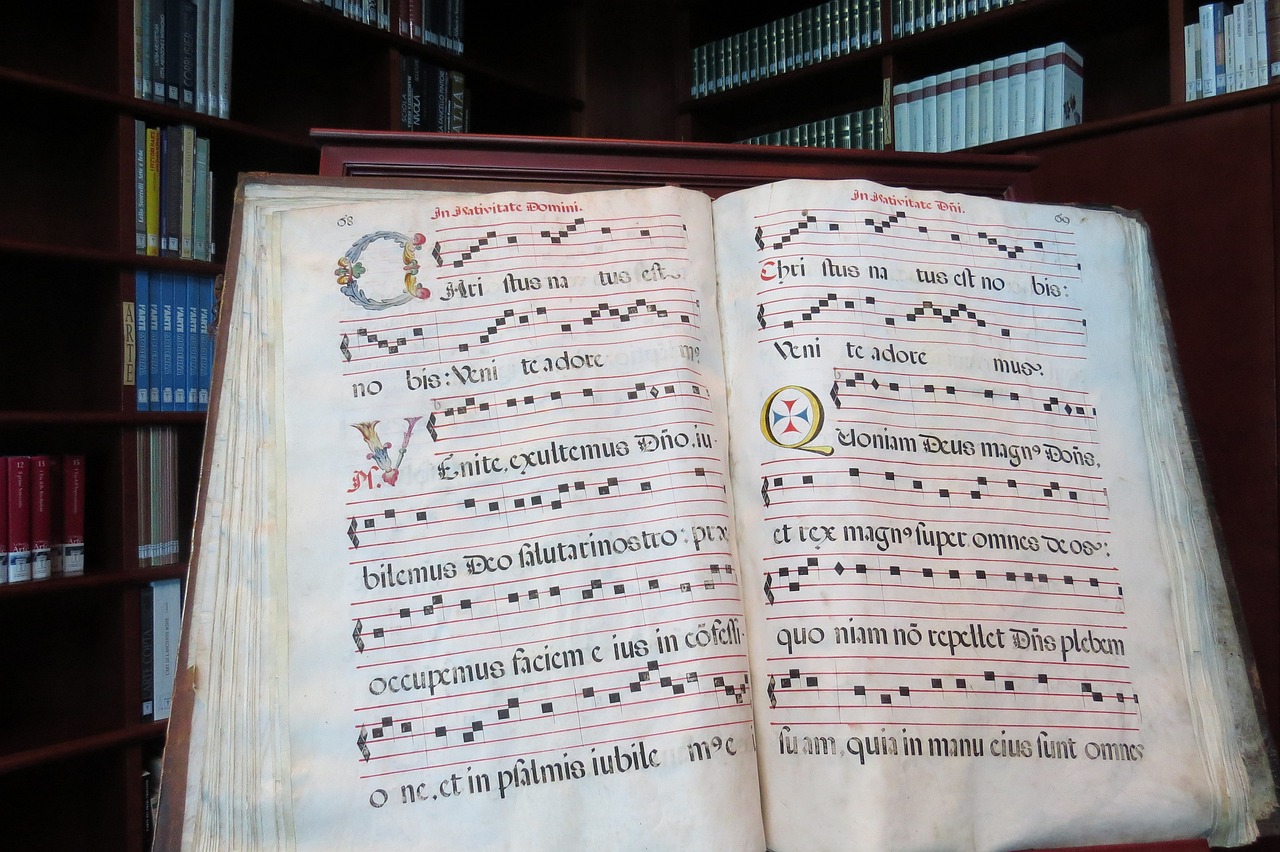 68
In Nativitate Domini.
CHri stus na tus est
no bis: Veni te adore m⁹
Ps. VEnite, exultemus Dño, iu-
bilemus Deo salutari nostro: præ
occupemus faciem e ius in cõfessi-
o ne, et in psalmis iubile m⁹ e
69
In Nativitate Dñi.
Chri stus na tus est no bis:
Veni te adore mus.
QUoniam Deus magn⁹ Doñs,
et rex magn⁹ super omnes deos:
quo niam nõ repellet Dñs plebem
su am, quia in manu eius sunt omnes
ARTE
L'ARTE
L'ARTE
L'ARTE
L'ARTE
L'ARTE
12
13